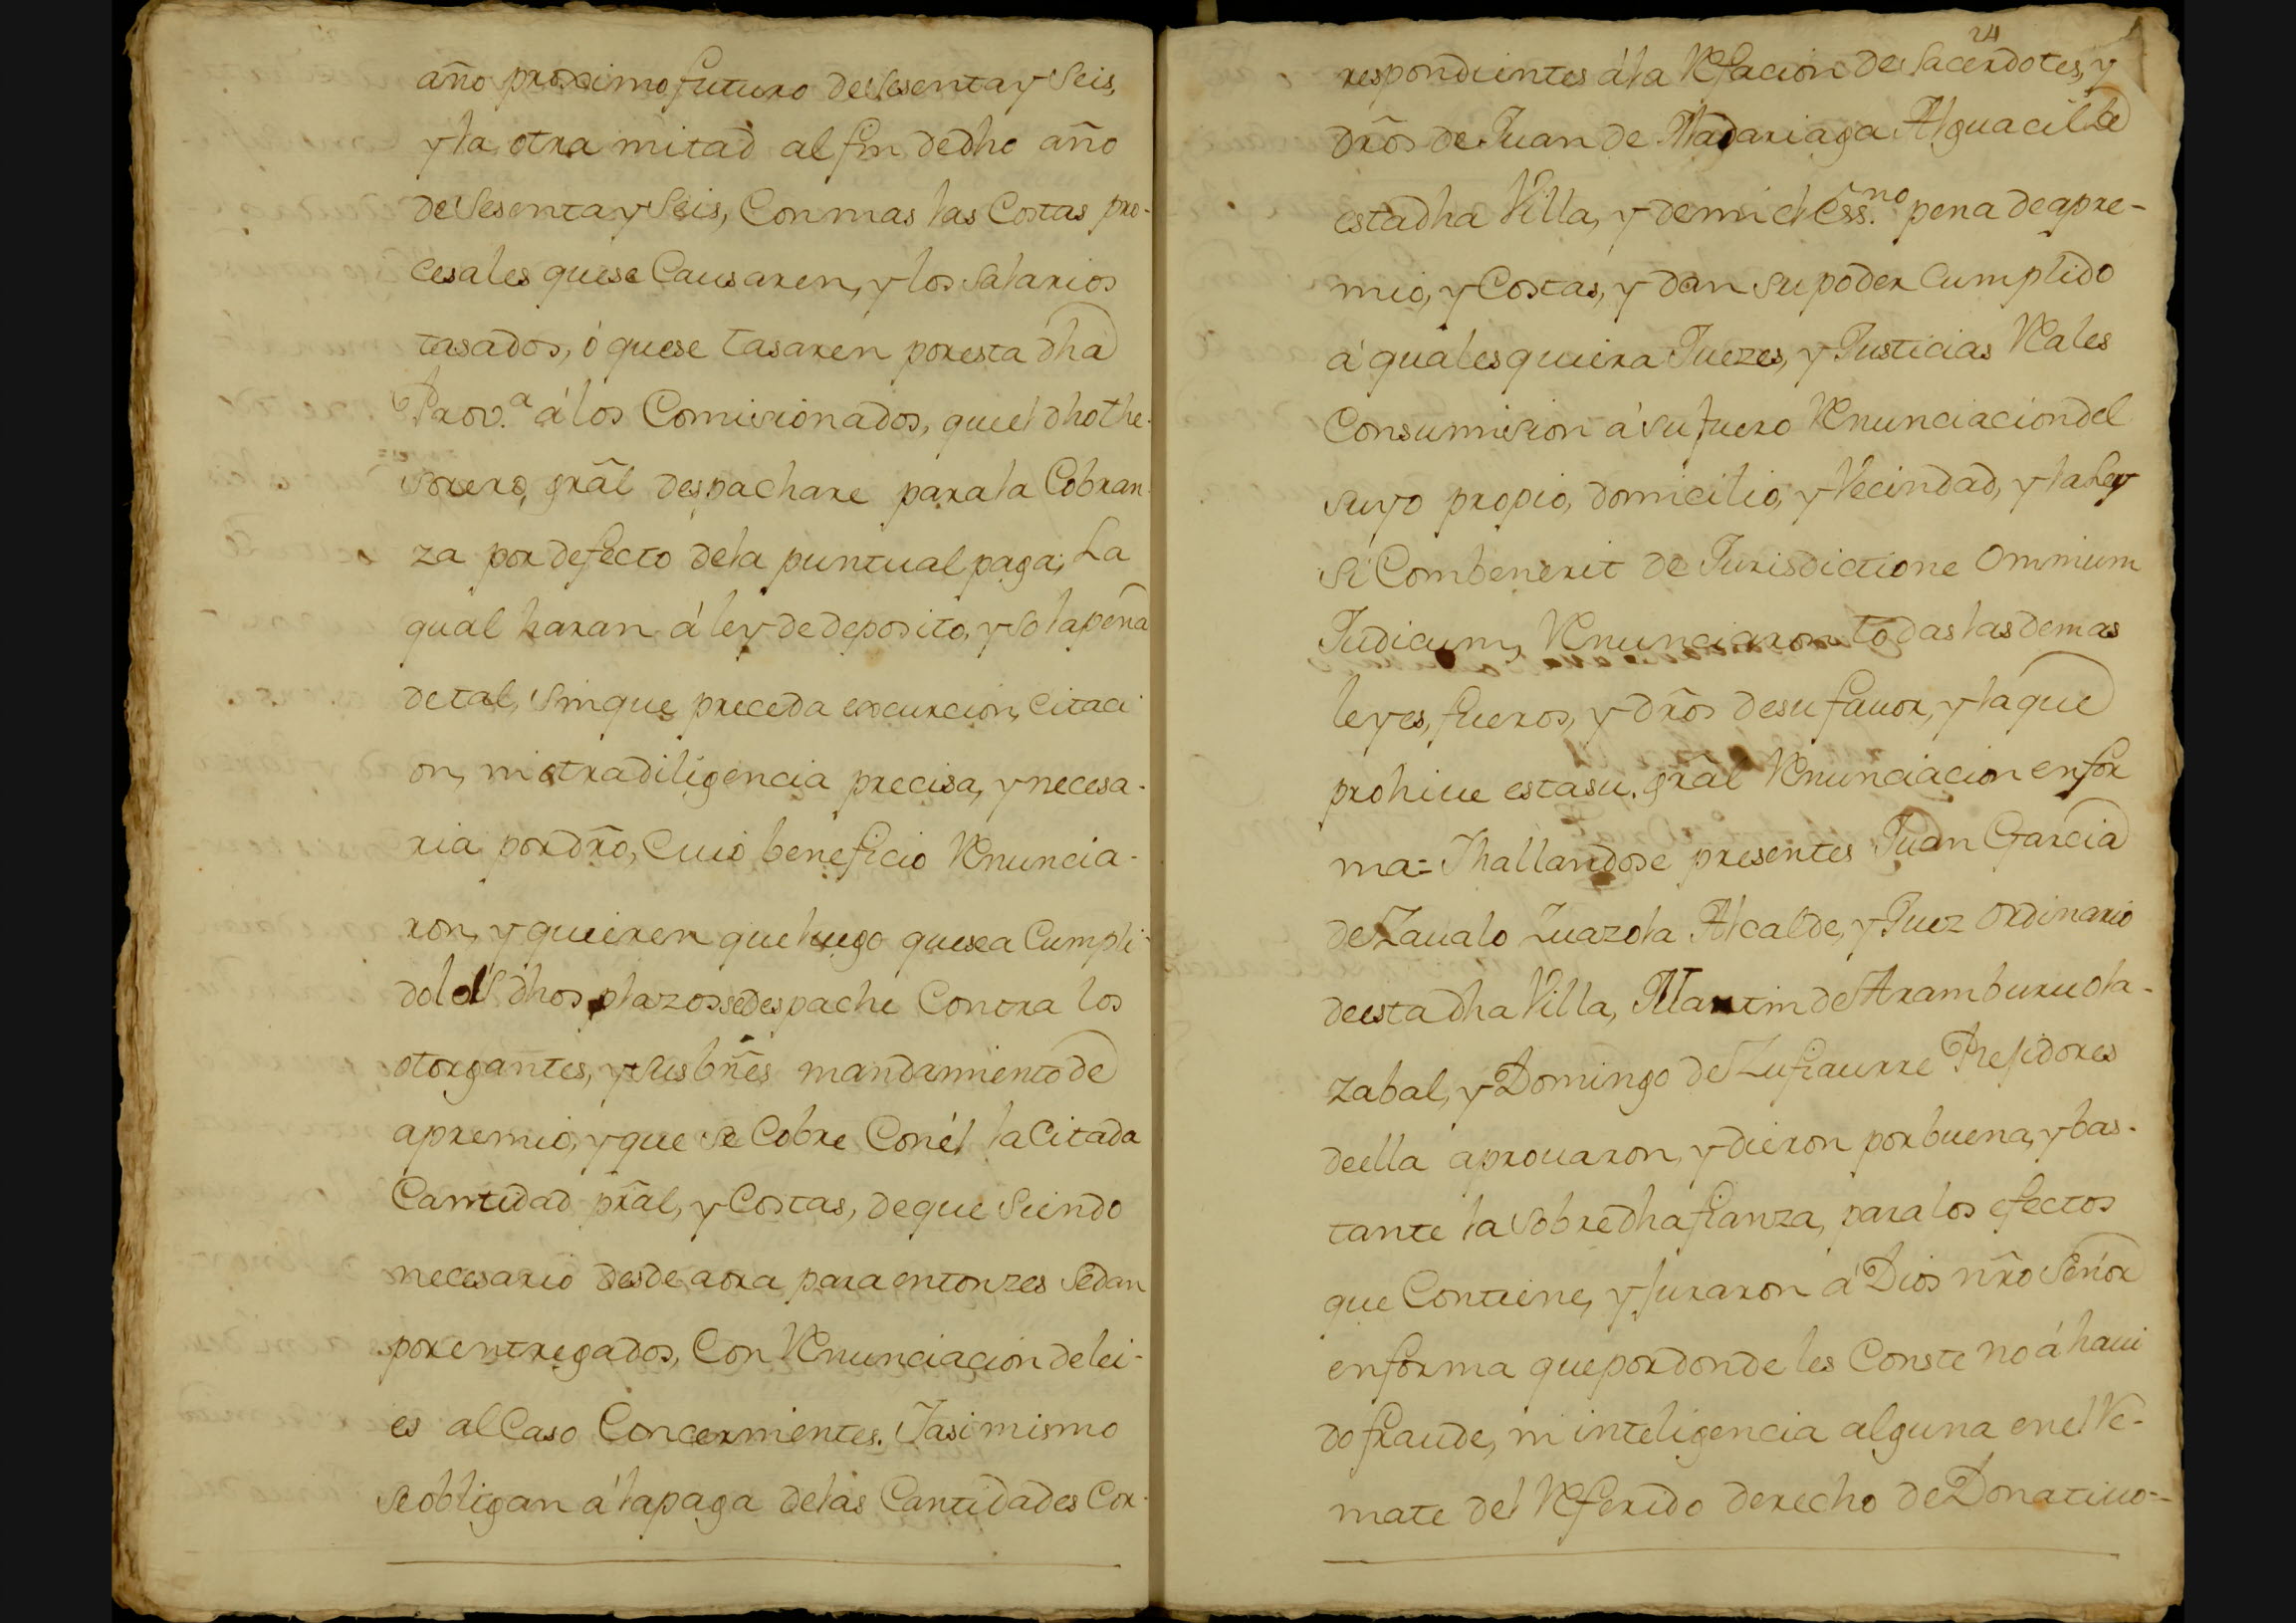 año proximo futuro de Sesenta y Seis,
y la otra mitad al fin de dho año
de Sesenta y Seis, Con mas las Costas pro-
cesales que se Causaren, y los Salarios
tasados, ó que se tasaren por esta dha
Prov.ª á los Comisionados, que el dho the-
sorero, grãl despachare para la Cobran
za por defecto de la puntual paga; La
qual haran á ley de deposito, y So la pena
de tal, Sin que preceda excurcion, Citaci
on, ni otra diligencia precisa, y necesa-
ria por dr̃o, Cuio beneficio Renuncia-
ron, y quieren que luego que sea Cumpli-
do los dhos plazos se despache Contra los
otorgantes, y sus bñes mandamiento de
apremio, y que se Cobre Con él la Citada
Cantidad prãl, y Costas, de que Siendo
necesario desde aora para entonzes Se dan
por entregados, Con Renunciacion de lei-
es al Caso Concernientes. Iasi mismo
Se obligan á la paga de las Cantidades Cor-
24
respondientes á la Refacion de Sacerdotes, y
dr̃os de Juan de Madariaga Alguacil de
esta dha Villa, y de mi el Ess.no pena de apre-
mio, y Costas, y dan su poder Cumplido
á qualesquiera Juezes, y Justicias Reales
Con sumision á su fuero Renunciacion del
suyo propio, domicilio, y Vecindad, y la Ley
Si Combenerit de Jurisdictione Omnium
Judicum, Renunciaron todas las demas
leyes, fueros, y dr̃os de su fauor, y la que
prohiue esta su grãl Renunciacion en for
ma= Ihallandose presentes Juan Garcia
de Zaualo Zuazola Alcalde, y Juez Ordinario
de esta dha Villa, Martin de Aramburu ola-
zabal, y Domingo de Zufiaurre Rejidores
de ella aprouaron, y dieron por buena, y bas-
tante la sobre dha fianza, para los efectos
que Contiene, y juraron á Dios nr̃o Señor
en forma que por donde les Conste no á haui
do fraude, ni inteligencia alguna en el Re-
mate del Referido derecho de Donatiuo=